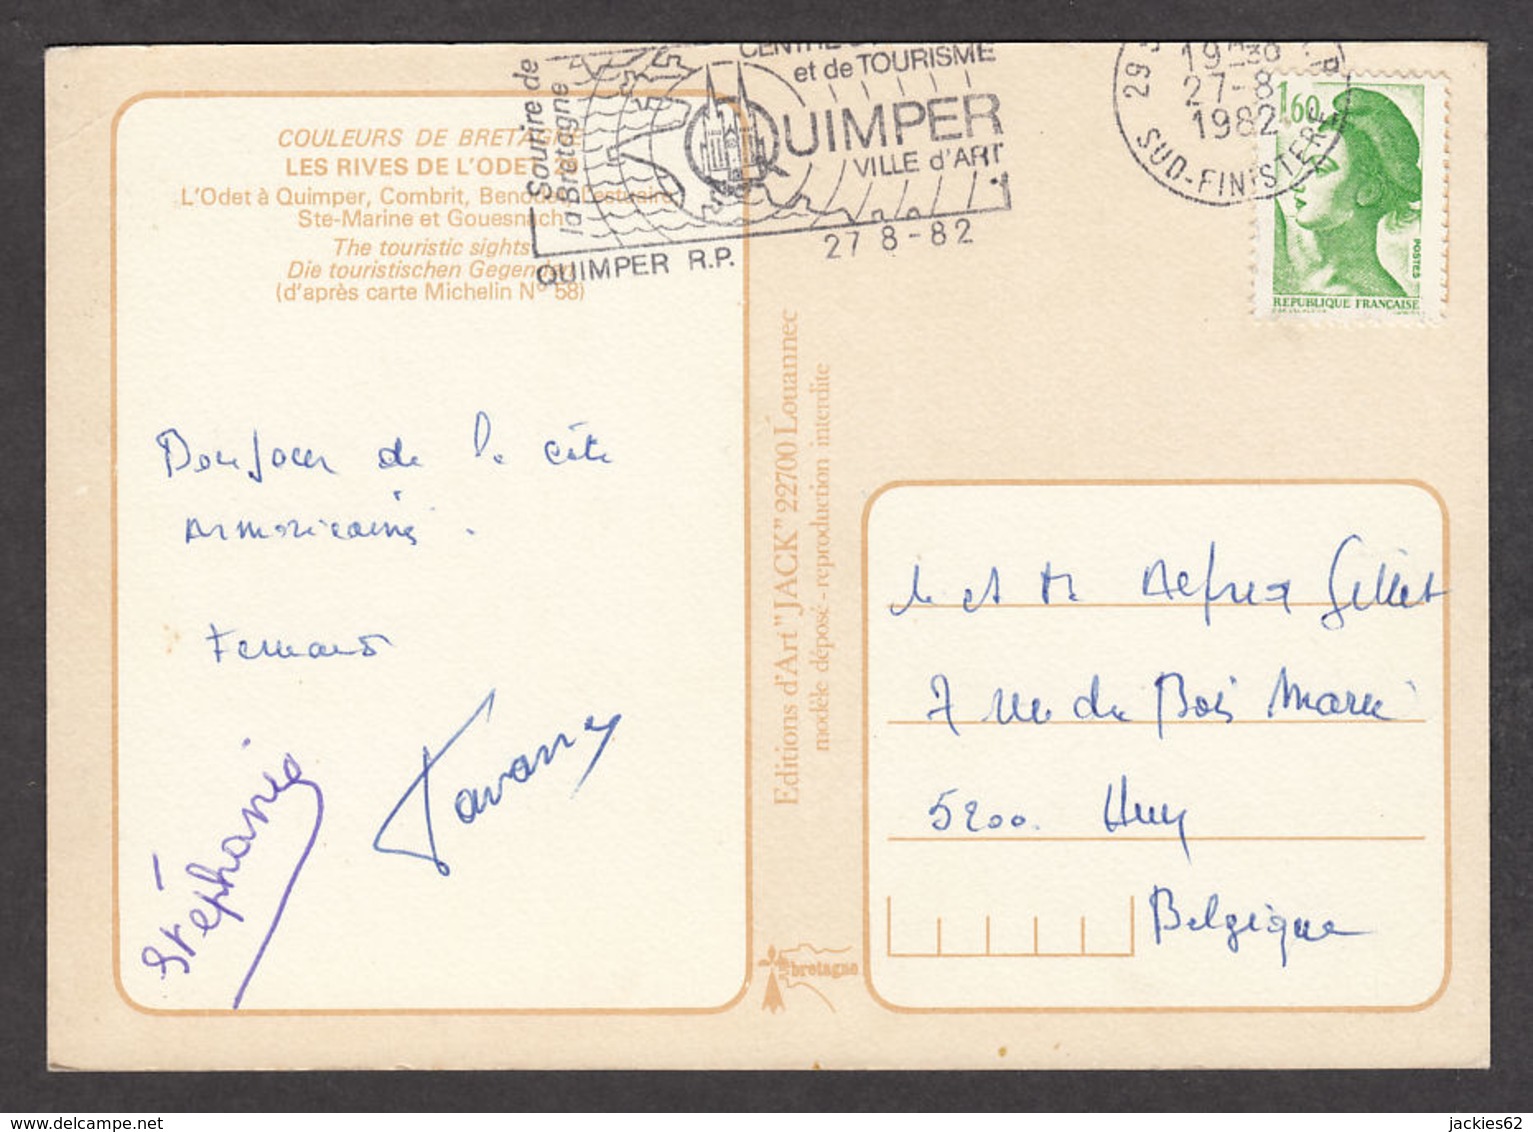 COULEURS DE BRETAGNE
LES RIVES DE L'ODET
L'Odet à Quimper, Combrit, Benodet, l'estuaire
Ste-Marine et Gouesnach
The touristic sights
Die touristischen Gegenden
(d'après carte Michelin N° 58)
Sourire de
la Bretagne
CENTRE
et de TOURISME
QUIMPER
VILLE d'ART
QUIMPER R.P.
27 8-82
29
27-8
1982
SUD-FINISTERE
1,60
POSTES
REPUBLIQUE FRANÇAISE
Bonjour de la côte
armoricaine.
Fernand
Stéphanie
Editions d'Art "JACK" 22700 Louannec
modèle déposé - reproduction interdite
bretagne
M et M Alfred Gillet
7 rue du Bois Marie
5200. Huy
Belgique
jackies62